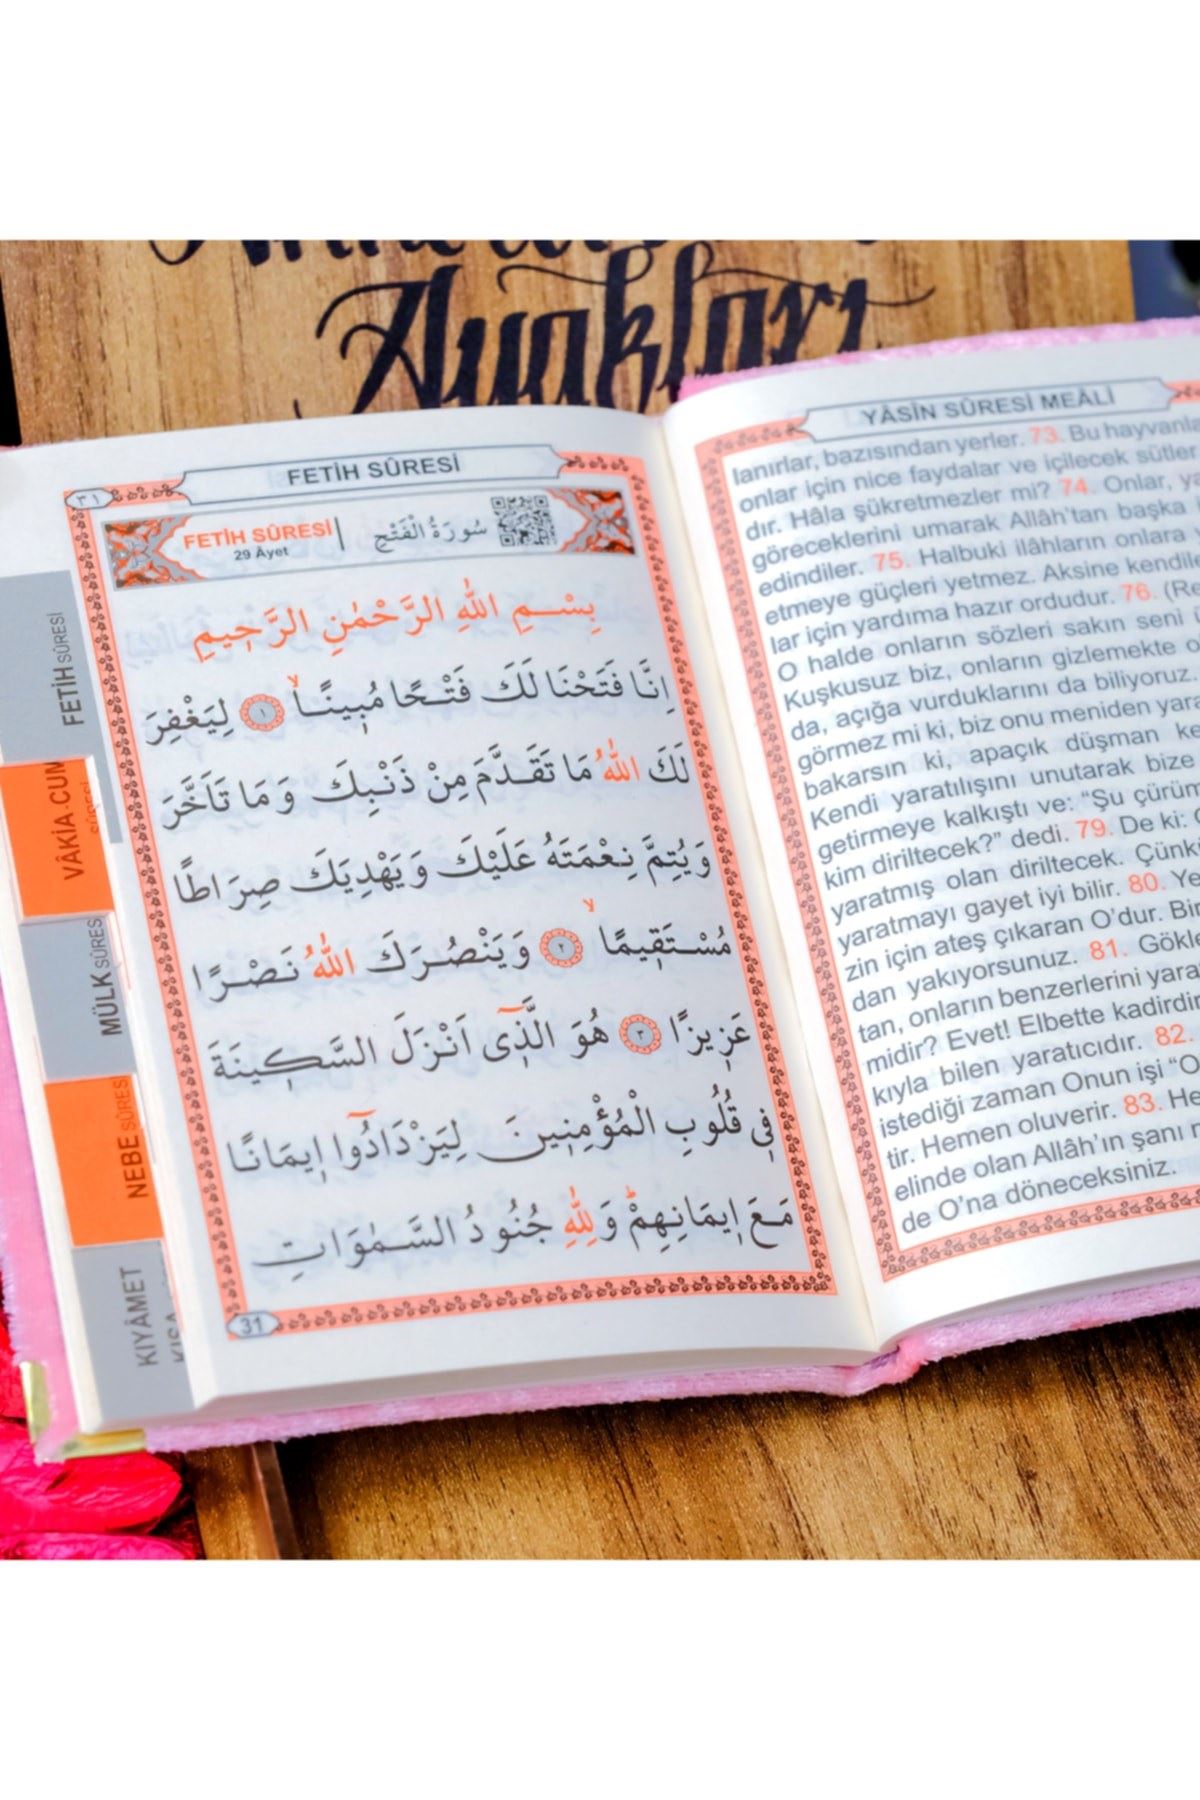 Ayakları
FETİH SÛRESİ
٣١
FETİH SÛRESİ
29 Âyet
سُورَةُ الْفَتْحِ
بِسْــمِ اللّٰهِ الرَّحْمٰنِ الرَّح۪يمِ
اِنَّا فَتَحْنَا لَكَ فَتْحًا مُب۪ينًاۙ ﴿١﴾ لِيَغْفِرَ
لَكَ اللّٰهُ مَا تَقَدَّمَ مِنْ ذَنْبِكَ وَمَا تَاَخَّرَ
وَيُتِمَّ نِعْمَتَهُ عَلَيْكَ وَيَهْدِيَكَ صِرَاطًا
مُسْتَق۪يمًاۙ ﴿٢﴾ وَيَنْصُرَكَ اللّٰهُ نَصْرًا
عَز۪يزًا ﴿٣﴾ هُوَ الَّذ۪ٓي اَنْزَلَ السَّك۪ينَةَ
ف۪ي قُلُوبِ الْمُؤْمِن۪ينَ لِيَزْدَادُٓوا ا۪يمَانًا
مَعَ ا۪يمَانِهِمْۜ وَلِلّٰهِ جُنُودُ السَّمٰوَاتِ
31
FETİH SÛRESİ
VÂKİA.CUM
SÛRESİ
MÜLK SÛRES
NEBE SÛRES
KIYÂMET
YÂSÎN SÛRESİ MEÂLİ
lanırlar, bazısından yerler. 73. Bu hayvanla
onlar için nice faydalar ve içilecek sütler
dır. Hâla şükretmezler mi? 74. Onlar, ya
göreceklerini umarak Allâh'tan başka
edindiler. 75. Halbuki ilâhların onlara
etmeye güçleri yetmez. Aksine kendile
lar için yardıma hazır ordudur. 76. (Re
O halde onların sözleri sakın seni
Kuşkusuz biz, onların gizlemekte o
da, açığa vurduklarını da biliyoruz.
görmez mi ki, biz onu meniden yara
bakarsın ki, apaçık düşman ke
Kendi yaratılışını unutarak bize
getirmeye kalkıştı ve: “Şu çürüm
kim diriltecek?” dedi. 79. De ki:
yaratmış olan diriltecek. Çünkü
yaratmayı gayet iyi bilir. 80. Ye
zin için ateş çıkaran O'dur. Bir
dan yakıyorsunuz. 81. Gökle
tan, onların benzerlerini yara
midir? Evet! Elbette kadirdir
kıyla bilen yaratıcıdır. 82.
istediği zaman Onun işi “O
tir. Hemen oluverir. 83. He
elinde olan Allâh'ın şanı
de O'na döneceksiniz.